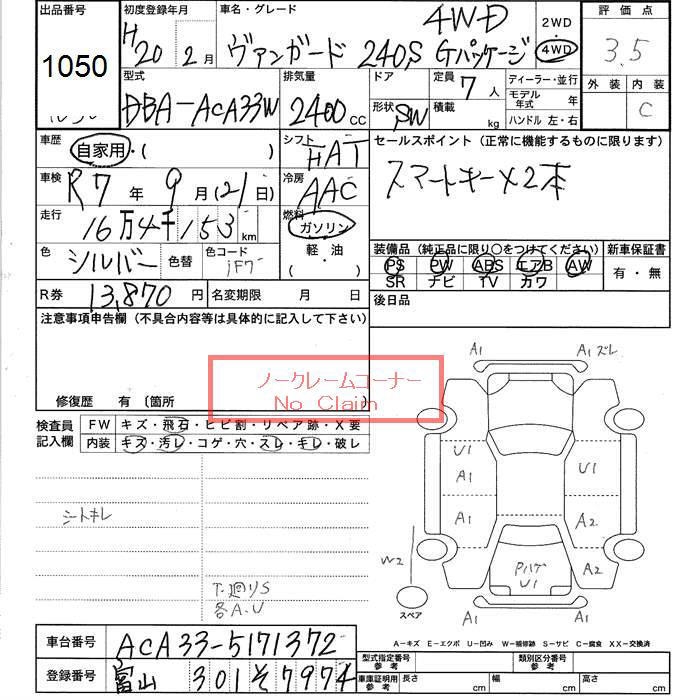 出品番号 初度登録年月 車名・グレード 2WD 評価点
1050 H20 2月 ヴァンガード 240S Gパッケージ 4WD 4WD 3.5
型式 排気量 ドア 定員 ディーラー・並行 外装 内装
DBA-ACA33W 2400cc 7人 モデル年式 年 C
形状 SW 積載 kg ハンドル 左・右
車歴 シフト セールスポイント（正常に機能するものに限ります）
自家用・( ) HAT スマートキー×2本
車検 R7年 9月(21日) 冷房 AAC
走行 16万4千153km 燃料 ガソリン
色 シルバー 色替 色コード 1F7 軽・油 ( ・ )
装備品（純正品に限り○をつけてください） 新車保証書
PS PW ABS エアB AW 有・無
SR ナビ TV カワ
R券 13,870円 名変期限 月 日 後日品
注意事項申告欄（不具合内容等は具体的に記入して下さい）
ノークレームコーナー
No Claim
修復歴 有〔箇所
検査員記入欄 FW キズ・飛石・ヒビ割・リペア跡・X要
内装 キズ・汚レ・コゲ・穴・スレ・キレ・破レ
シートキレ
下廻りS
各A.U
A1 A1ズレ
U1 U1
A1
A1 A2
W2 PハゲU1 A2
スペア A1 A1
A－キズ E－エクボ U－凹み W－補修跡 S－サビ C－腐食 XX－交換済
車台番号 ACA33-5171372
登録番号 富山 301 そ 7974
型式指定番号 参考 類別区分番号 参考
車庫証明用 参考 長さ cm 幅 cm 高さ cm